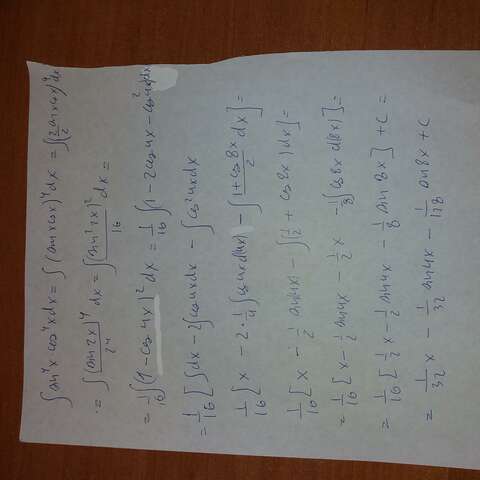 ∫ sin⁴x · cos⁴x dx = ∫ (sin x cos x)⁴ dx = ∫ (2/2 sin x cos x)⁴ dx
= ∫ (sin 2x)⁴/2⁴ dx = ∫ (sin² 2x)²/16 dx =
= 1/16 ∫ (1 - cos 4x)² dx = 1/16 ∫ (1 - 2cos 4x - cos² 4x) dx
= 1/16 [ ∫ dx - 2 ∫ cos 4x dx - ∫ cos² 4x dx
1/16 [ x - 2 · 1/4 ∫ cos 4x d(4x) - ∫ (1 + cos 8x)/2 dx ] =
1/16 [ x - 1/2 sin 4x - ∫ (1/2 + cos 8x) dx ] =
= 1/16 [ x - 1/2 sin 4x - 1/2 x - 1/8 ∫ cos 8x d(8x) ] =
= 1/16 [ 1/2 x - 1/2 sin 4x - 1/8 sin 8x ] + C =
= 1/32 x - 1/32 sin 4x - 1/128 sin 8x + C